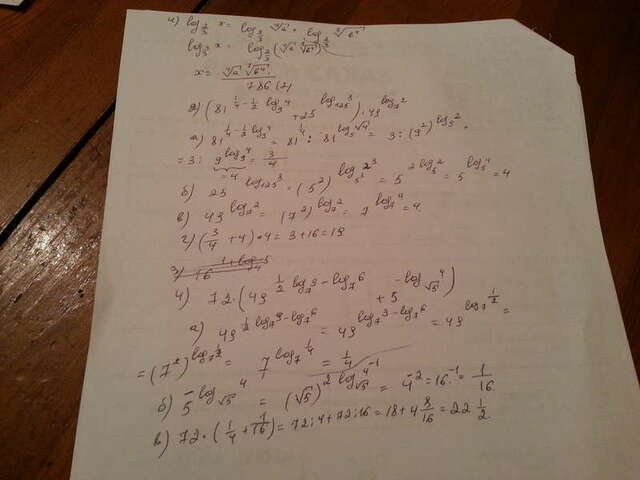 и) log_{2/3} x = log_{2/3} ⁷√a + log_{2/3} ⁷√b⁴
log_{2/3} x = log_{2/3} (⁷√a ⁷√b⁴)
x = ⁷√a ⁷√b⁴.
786 (2)
2) (81^{1/4 - 1/2 log_9 4} + 25^{log_{125} 8}) · 49^{log_7 2}
а) 81^{1/4 - 1/2 log_9 4} = 81^{1/4} : 81^{log_9 √4} = 3 : (9²)^{log_9 2} =
= 3 : 9^{log_9 4} = 3/4
= 4
б) 25^{log_{125} 8} = (5²)^{log_{5^3} 2^3} = 5^{2 log_5 2} = 5^{log_5 4} = 4
в) 49^{log_7 2} = (7²)^{log_7 2} = 7^{log_7 4} = 4.
г) (3/4 + 4) · 4 = 3 + 16 = 19
4) 72 · (49^{1/2 log_7 9 - log_7 6} + 5^{-log_{√5} 4})
а) 49^{1/2 log_7 9 - log_7 6} = 49^{log_7 3 - log_7 6} = 49^{log_7 1/2} =
= (7²)^{log_7 1/2} = 7^{log_7 1/4} = 1/4
б) 5^{-log_{√5} 4} = (√5)^{2 log_{√5} 4^{-1}} = 4^{-2} = 16^{-1} = 1/16
в) 72 · (1/4 + 1/16) = 72 : 4 + 72 : 16 = 18 + 4 8/16 = 22 1/2.